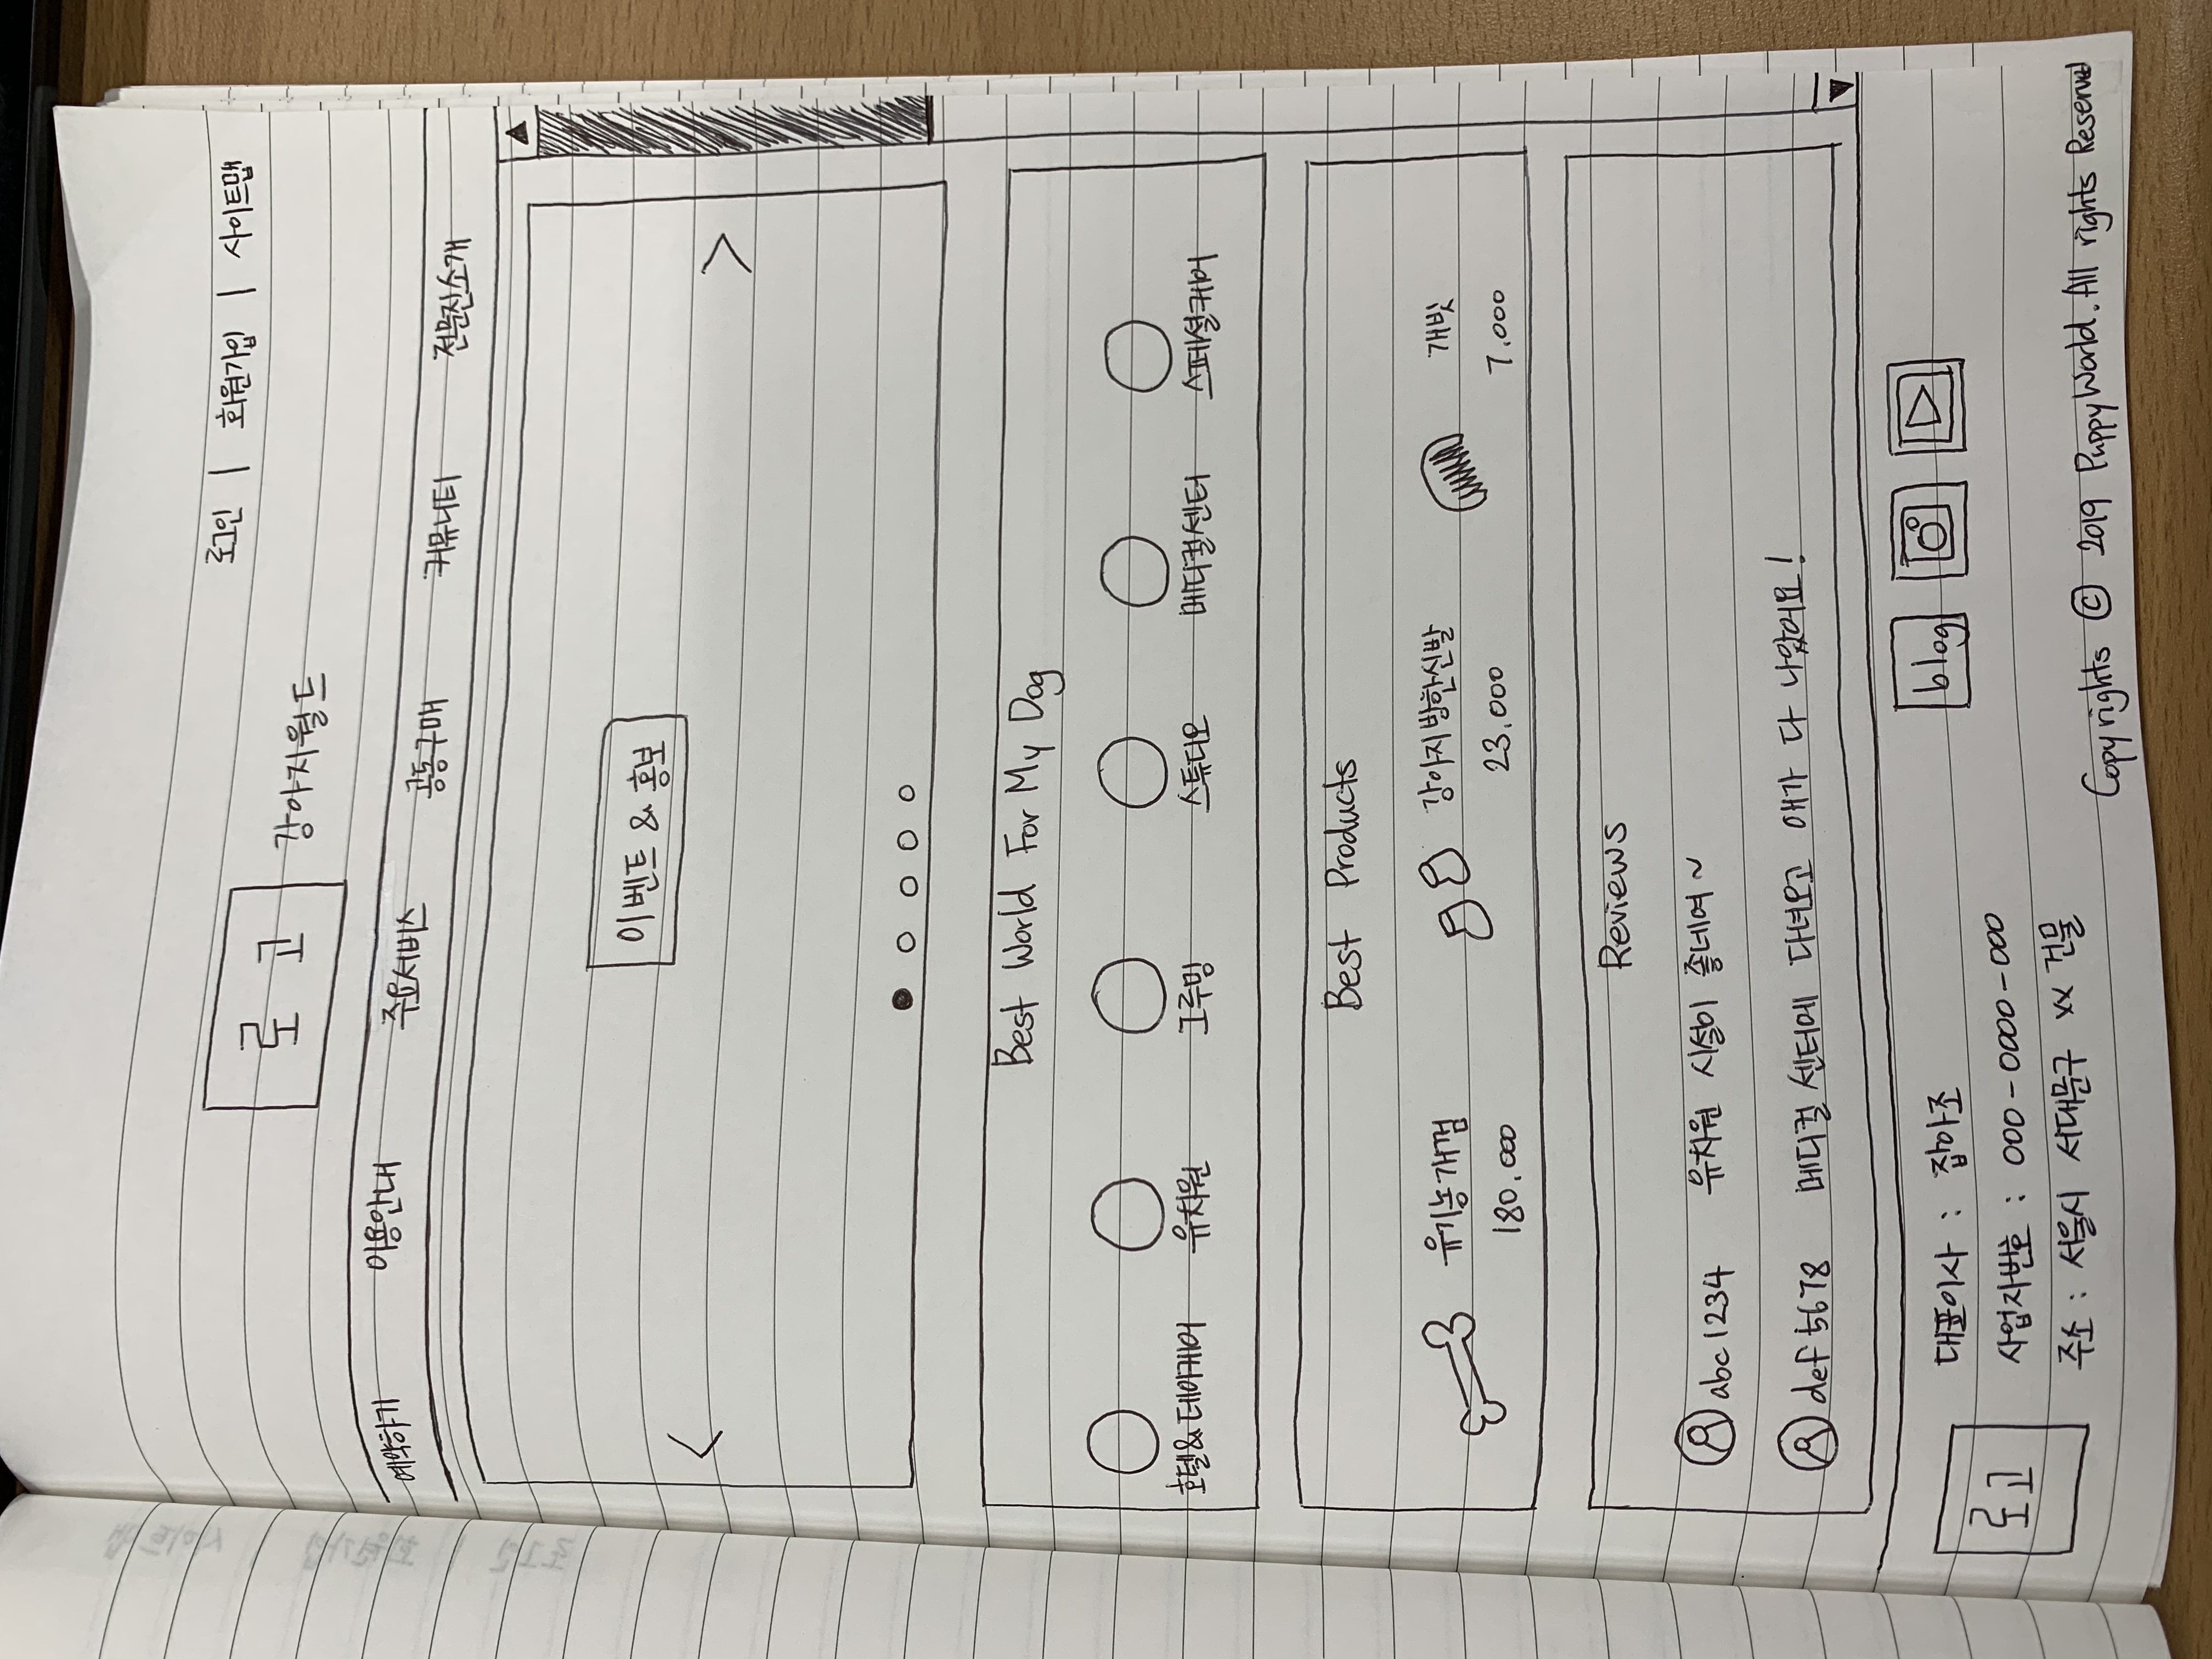 로그인 | 회원가입 | 사이트맵
로고 강아지월드
예약하기 이용안내 주요서비스 공동구매 커뮤니티 전문진소개
이벤트 & 홍보
< >
Best World For My Dog
호텔&데이케어 유치원 그루밍 스튜디오 메디컬센터 스페셜케어
Best Products
유기농개껌 강아지방한신발 개빗
180,000 23,000 7,000
Reviews
abc1234 유치원 시설이 좋네여~
def5678 메디컬센터에 다녀오고 애가 다 나았어요!
blog
로고
대표이사 : 잡아조
사업자번호 : 000-0000-000
주소 : 서울시 서대문구 xx 건물
Copyrights © 2019 PuppyWorld. All rights Reserved